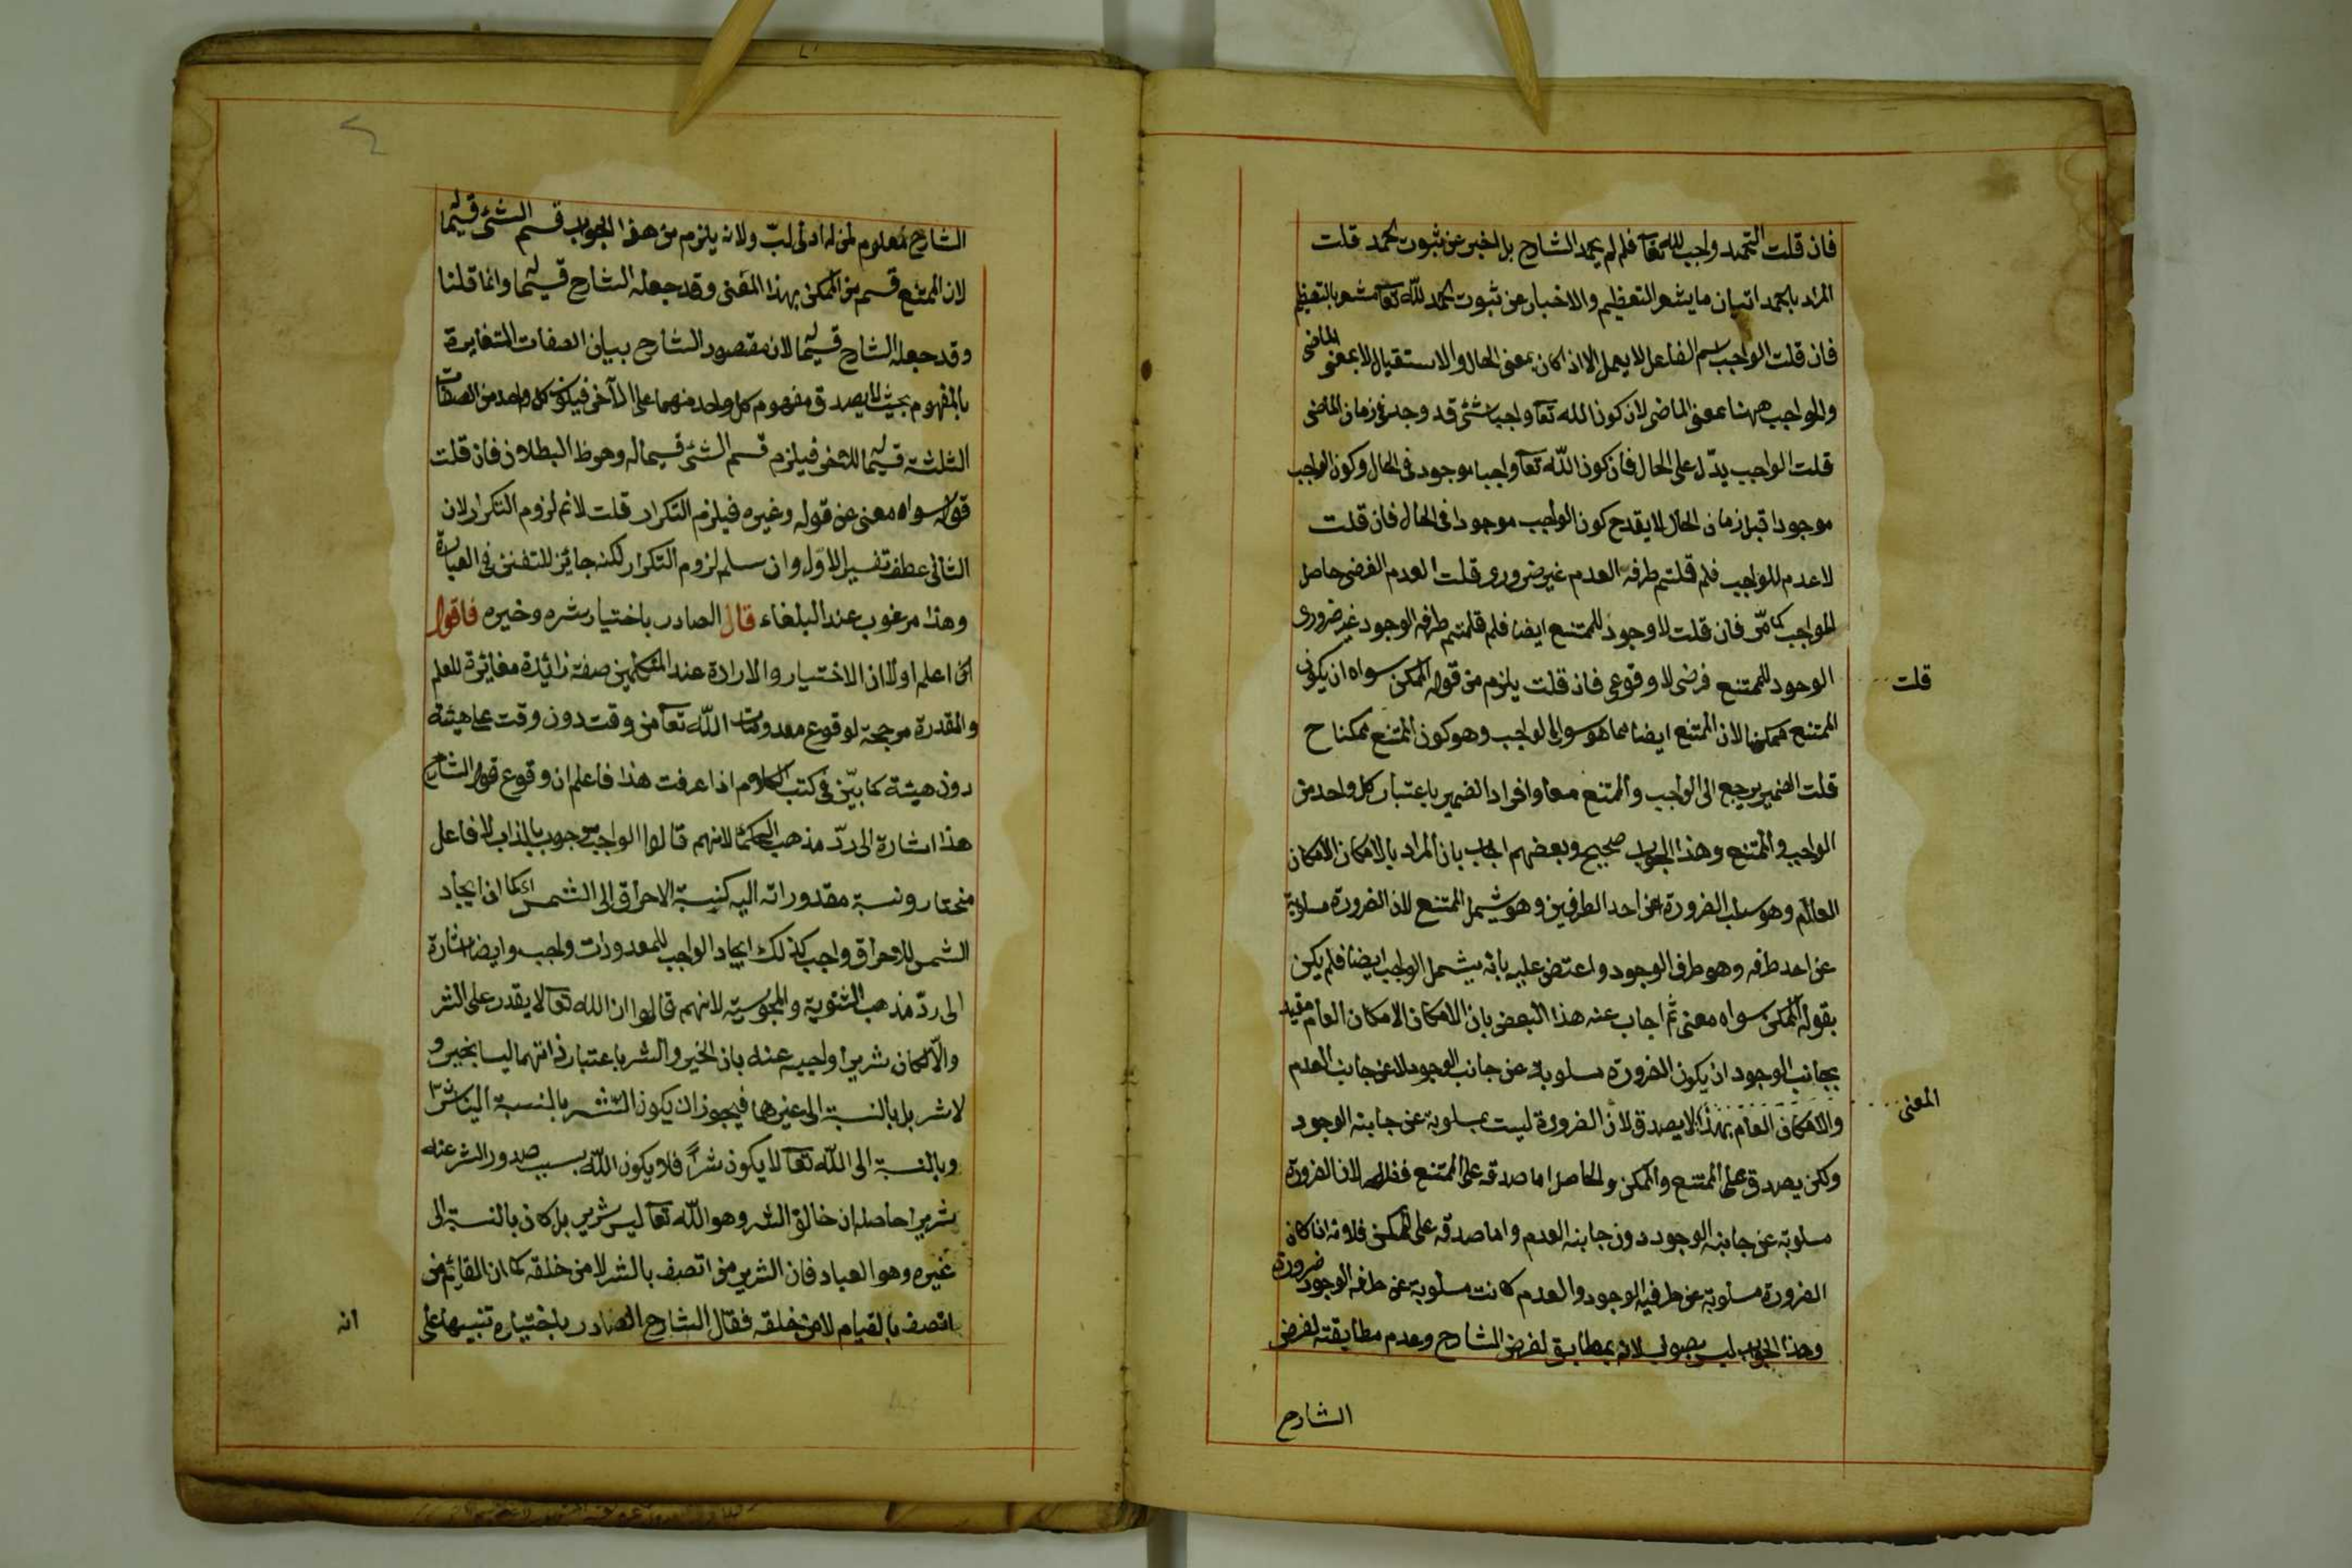 فان قلت التحميد واجب لله تعا فلم لم يحمد الشارح بل اخبر عن ثبوت الحمد قلت
المراد بالحمد اتيان ما يشعر التعظيم والاخبار عن ثبوت الحمد لله تعا مشعر بالتعظيم
فان قلت الواجب اسم الفاعل لا يعمل الا اذا كان بمعنى الحال والاستقبال لا بمعنى الماضى
والواجب ههنا بمعنى الماضى لان كون الله تعا واجبا شئ قد وجد فى زمان الماضى
قلت الواجب يدل على الحال فان كون الله تعا واجبا موجود فى الحال وكون الواجب
موجودا قبل زمان الحال لا يقدح كون الواجب موجودا فى الحال فان قلت
لا عدم للواجب فلم قلتم طرفه العدم غير ضرورى قلت العدم الفرضى حاصل
للواجب كما مر فان قلت لا وجود للممتنع ايضا فلم قلتم طرفه الوجود غير ضرورى
قلت
الوجود للممتنع فرضى لا وقوعى فان قلت يلزم من قوله الممكن سواه ان يكون
الممتنع ممكنا لان الممتنع ايضا مما هو سوى الواجب وهو كون الممتنع ممكنا ح
قلت الضمير يرجع الى الواجب والممتنع معا وافراد الضمير باعتبار كل واحد من
الواجب والممتنع وهذا الجواب صحيح وبعضهم اجاب بان المراد بالامكان الامكان
العام وهو سلب الضرورة عن احد الطرفين وهو يشمل الممتنع لان الضرورة مسلوبة
عن احد طرفه وهو طرف الوجود واعتض عليه بانه يشمل الواجب ايضا فلم يكن
بقوله الممكن سواه معنى ثم اجاب عنه هذا البعض بان الامكان الامكان العام مقيد
بجانب الوجود ان يكون الضرورة مسلوبة عن جانب الوجود لا عن جانب العدم
المعنى
والامكان العام بهذا لا يصدق لان الضرورة ليست بمسلوبة عن جانبه الوجود
ولكن يصدق على الممتنع والممكن والحاصل اما صدقه على الممتنع فظاهر لان الضرورة
مسلوبة عن جانبه الوجود دون جانبه العدم واما صدقه على الممكن فلانه اذا كان
الضرورة مسلوبة عن طرفيه الوجود والعدم كانت مسلوبة عن طرفه الوجود ضرورة
وهذا الجواب ليس بصواب لانه بمطابق لغرض الشارح وعدم مطابقته لغرض
الشارح
الشارح معلوم لمن له ادنى لب ولانه يلزم من هذا الجواب قسم الشئ قسيما
لان الممتنع قسم من الممكن بهذا المعنى وقد جعله الشارح قسيما وانما قلنا
وقد جعله الشارح قسيما لان مقصود الشارح بيان الصفات المتغايرة
بالمفهوم بحيث لا يصدق مفهوم كل واحد منهما على الآخر فيكون كل واحد من الصفات
الثلثة قسيما للاخر فيلزم قسم الشئ قسيما له وهو ظ البطلان فان قلت
قوله سواه معنى عن قوله وغيره فيلزم التكرار قلت لا نم لزوم التكرار لان
الثانى عطف تفسير للاول وان سلم لزوم التكرار لكنه جايز للتفنن فى العبارة
وهذا مرغوب عند البلغاء قال الصادر باختيار شره وخيره فاقول
اعلم اولا ان الاختيار والارادة عند المتكلمين صفة زائدة مغايرة للعلم
والقدرة مرجحة لوقوع مقدورات الله تعا من وقت دون وقت على هيئة
دون هيئة كما بين فى كتب الكلام اذا عرفت هذا فاعلم ان وقوع قول الشارح
هذا اشارة الى رد مذهب الحكماء لانهم قالوا الواجب موجب بالذات لا فاعل
مختار ونسبة مقدوراته اليه كنسبة الاحراق الى الشمس اى كما ان ايجاد
الشمس للاحراق واجب كذلك ايجاد الواجب للمقدورات واجب وايضا اشارة
الى رد مذهب الثنوية والمجوسية لانهم قالوا ان الله تعا لا يقدر على الشر
والا لكان شريرا واجيب عنه بان الخير والشر باعتبار ذاتهما ليسا بخير و
لا شر بل بالنسبة الى غيرهما فيجوز ان يكون الشر بالنسبة الينا شرا
وبالنسبة الى الله تعا لا يكون شرا فلا يكون الله بسبب صدور الشر عنه
شريرا حاصله ان خالق الشر وهو الله تعا ليس بشرير بل كان بالنسبة الى
غيره وهو العباد فان الشرير من اتصف بالشر لا من خلقه كما ان القائم من
اتصف بالقيام لا من خلقه فقال الشارح الصادر باختياره تنبيها على
انه